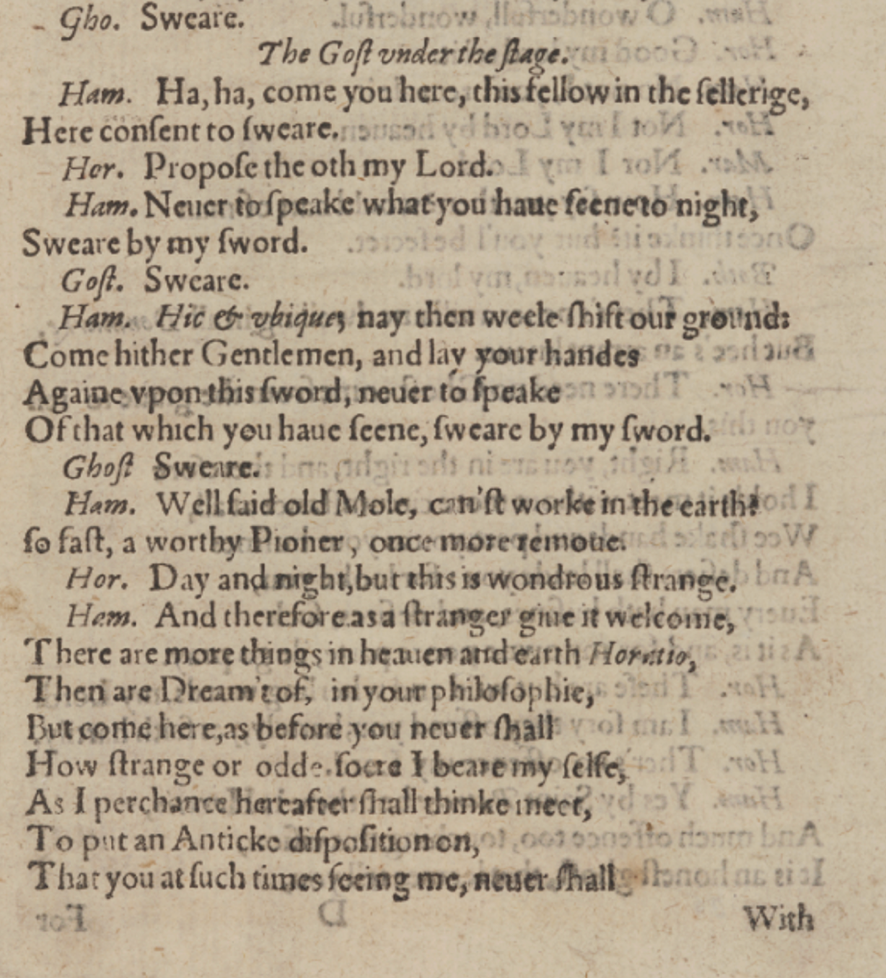 Gho. Sweare.
The Goſt vnder the ſtage.
Ham. Ha, ha, come you here, this fellow in the ſellerige,
Here conſent to ſweare.
Hor. Propoſe the oth my Lord.
Ham. Neuer to ſpeake what you haue ſeene to night,
Sweare by my ſword.
Goſt. Sweare.
Ham. Hic & vbique; nay then weele ſhift our ground:
Come hither Gentlemen, and lay your handes
Againe vpon this ſword, neuer to ſpeake
Of that which you haue ſeene, ſweare by my ſword.
Ghoſt Sweare.
Ham. Well ſaid old Mole, can'ſt worke in the earth?
ſo faſt, a worthy Pioner, once more remoue.
Hor. Day and night, but this is wondrous ſtrange.
Ham. And therefore as a ſtranger giue it welcome,
There are more things in heauen and earth Horatio,
Then are Dream't of, in your philoſophie,
But come here, as before you neuer ſhall
How ſtrange or odde ſoere I beare my ſelfe,
As I perchance hereafter ſhall thinke meet,
To put an Anticke diſpoſition on,
That you at ſuch times ſeeing me, neuer ſhall
With